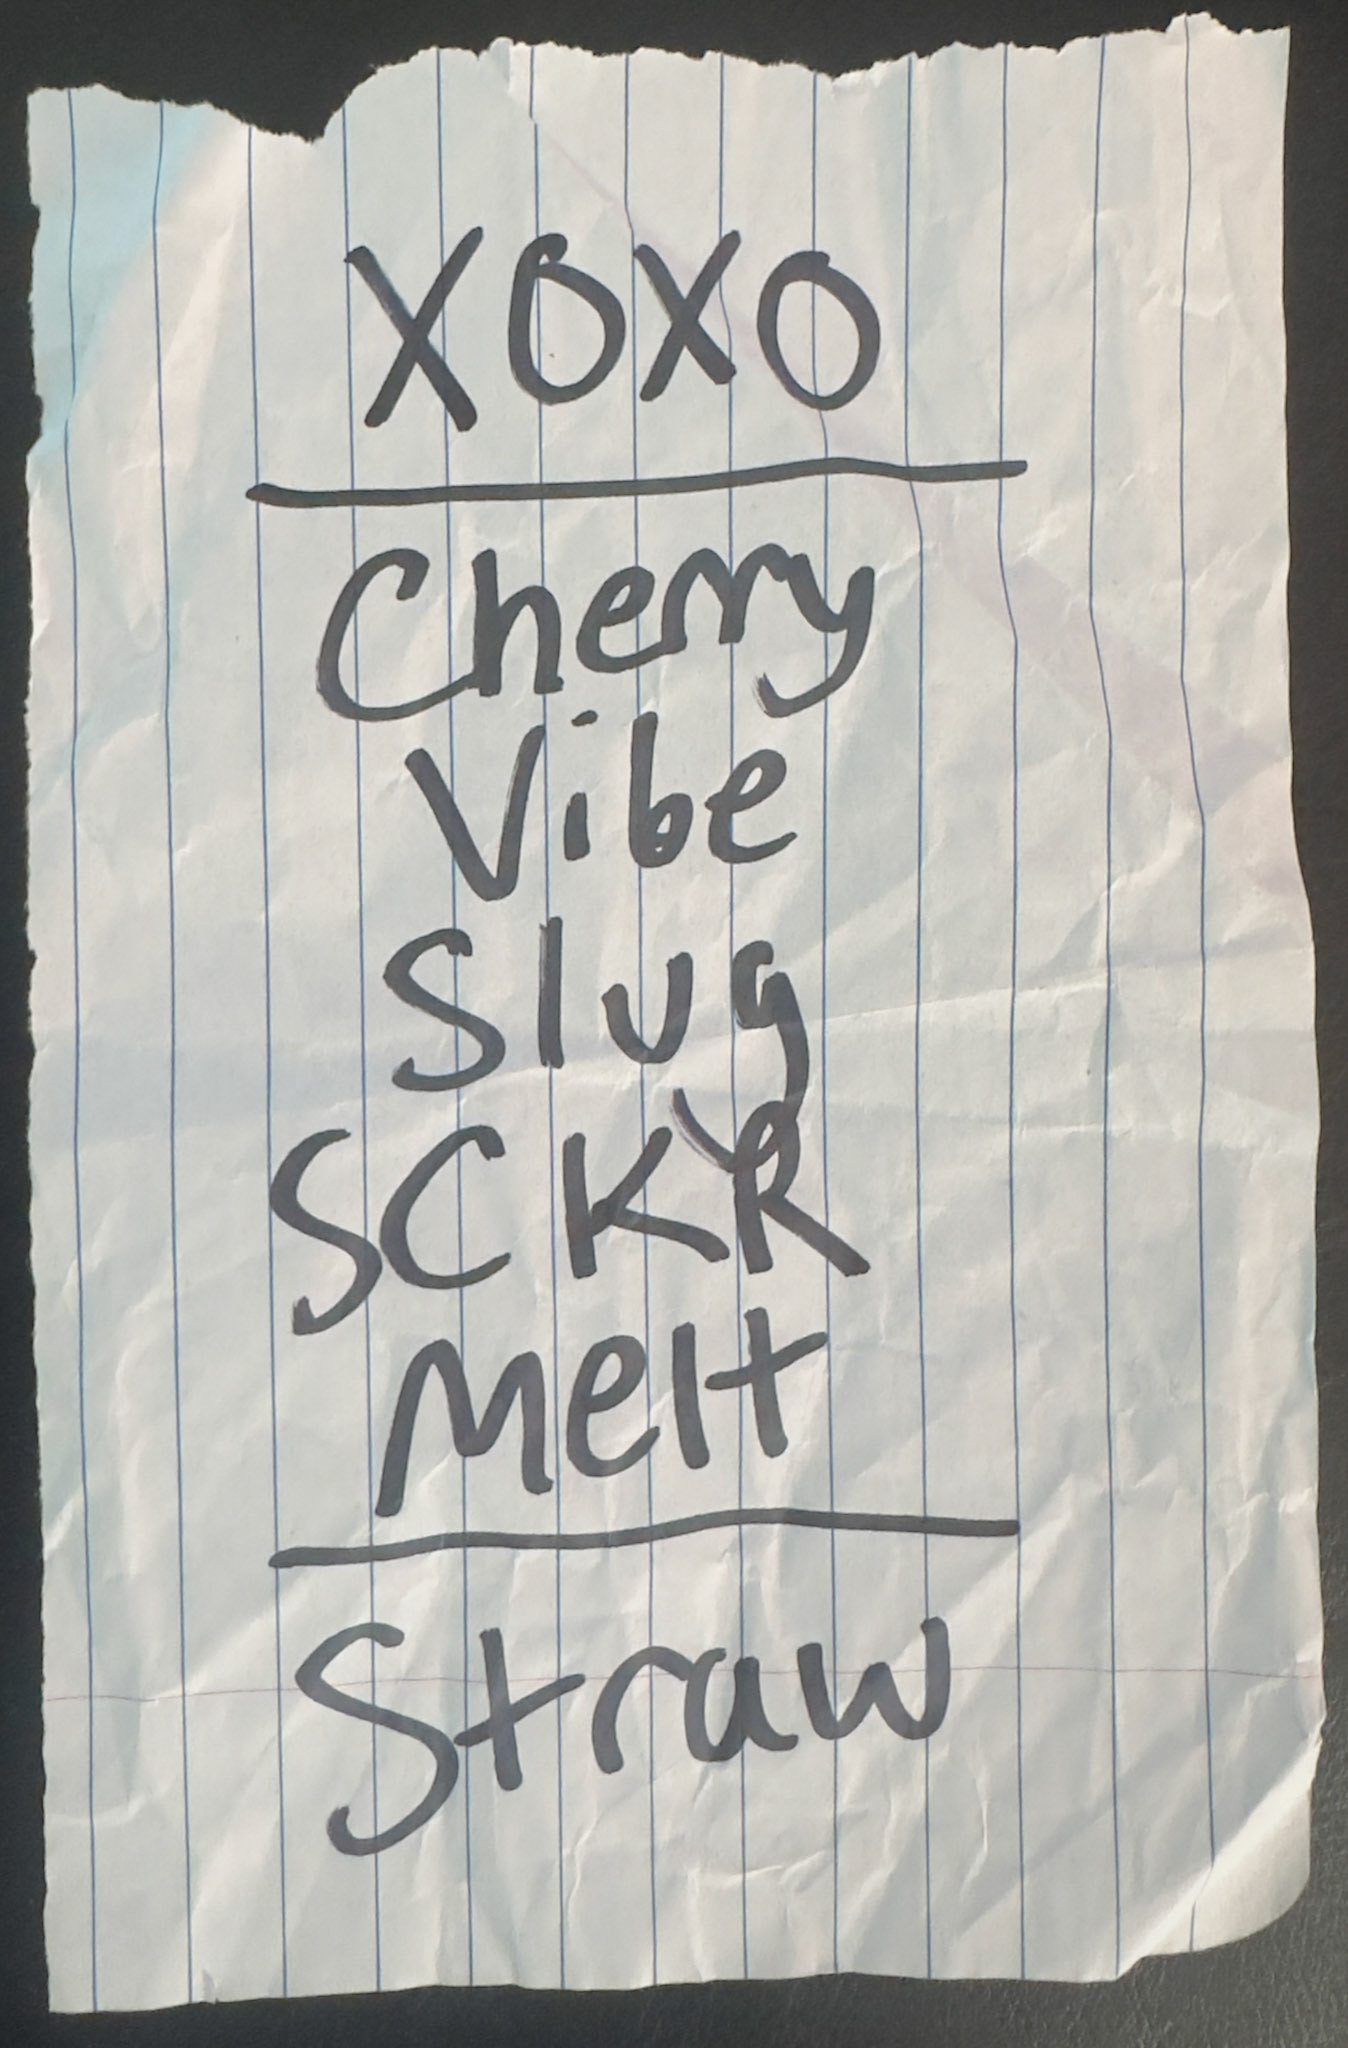 XOXO
Cherry
Vibe
Slug
SCKR
Melt
Straw